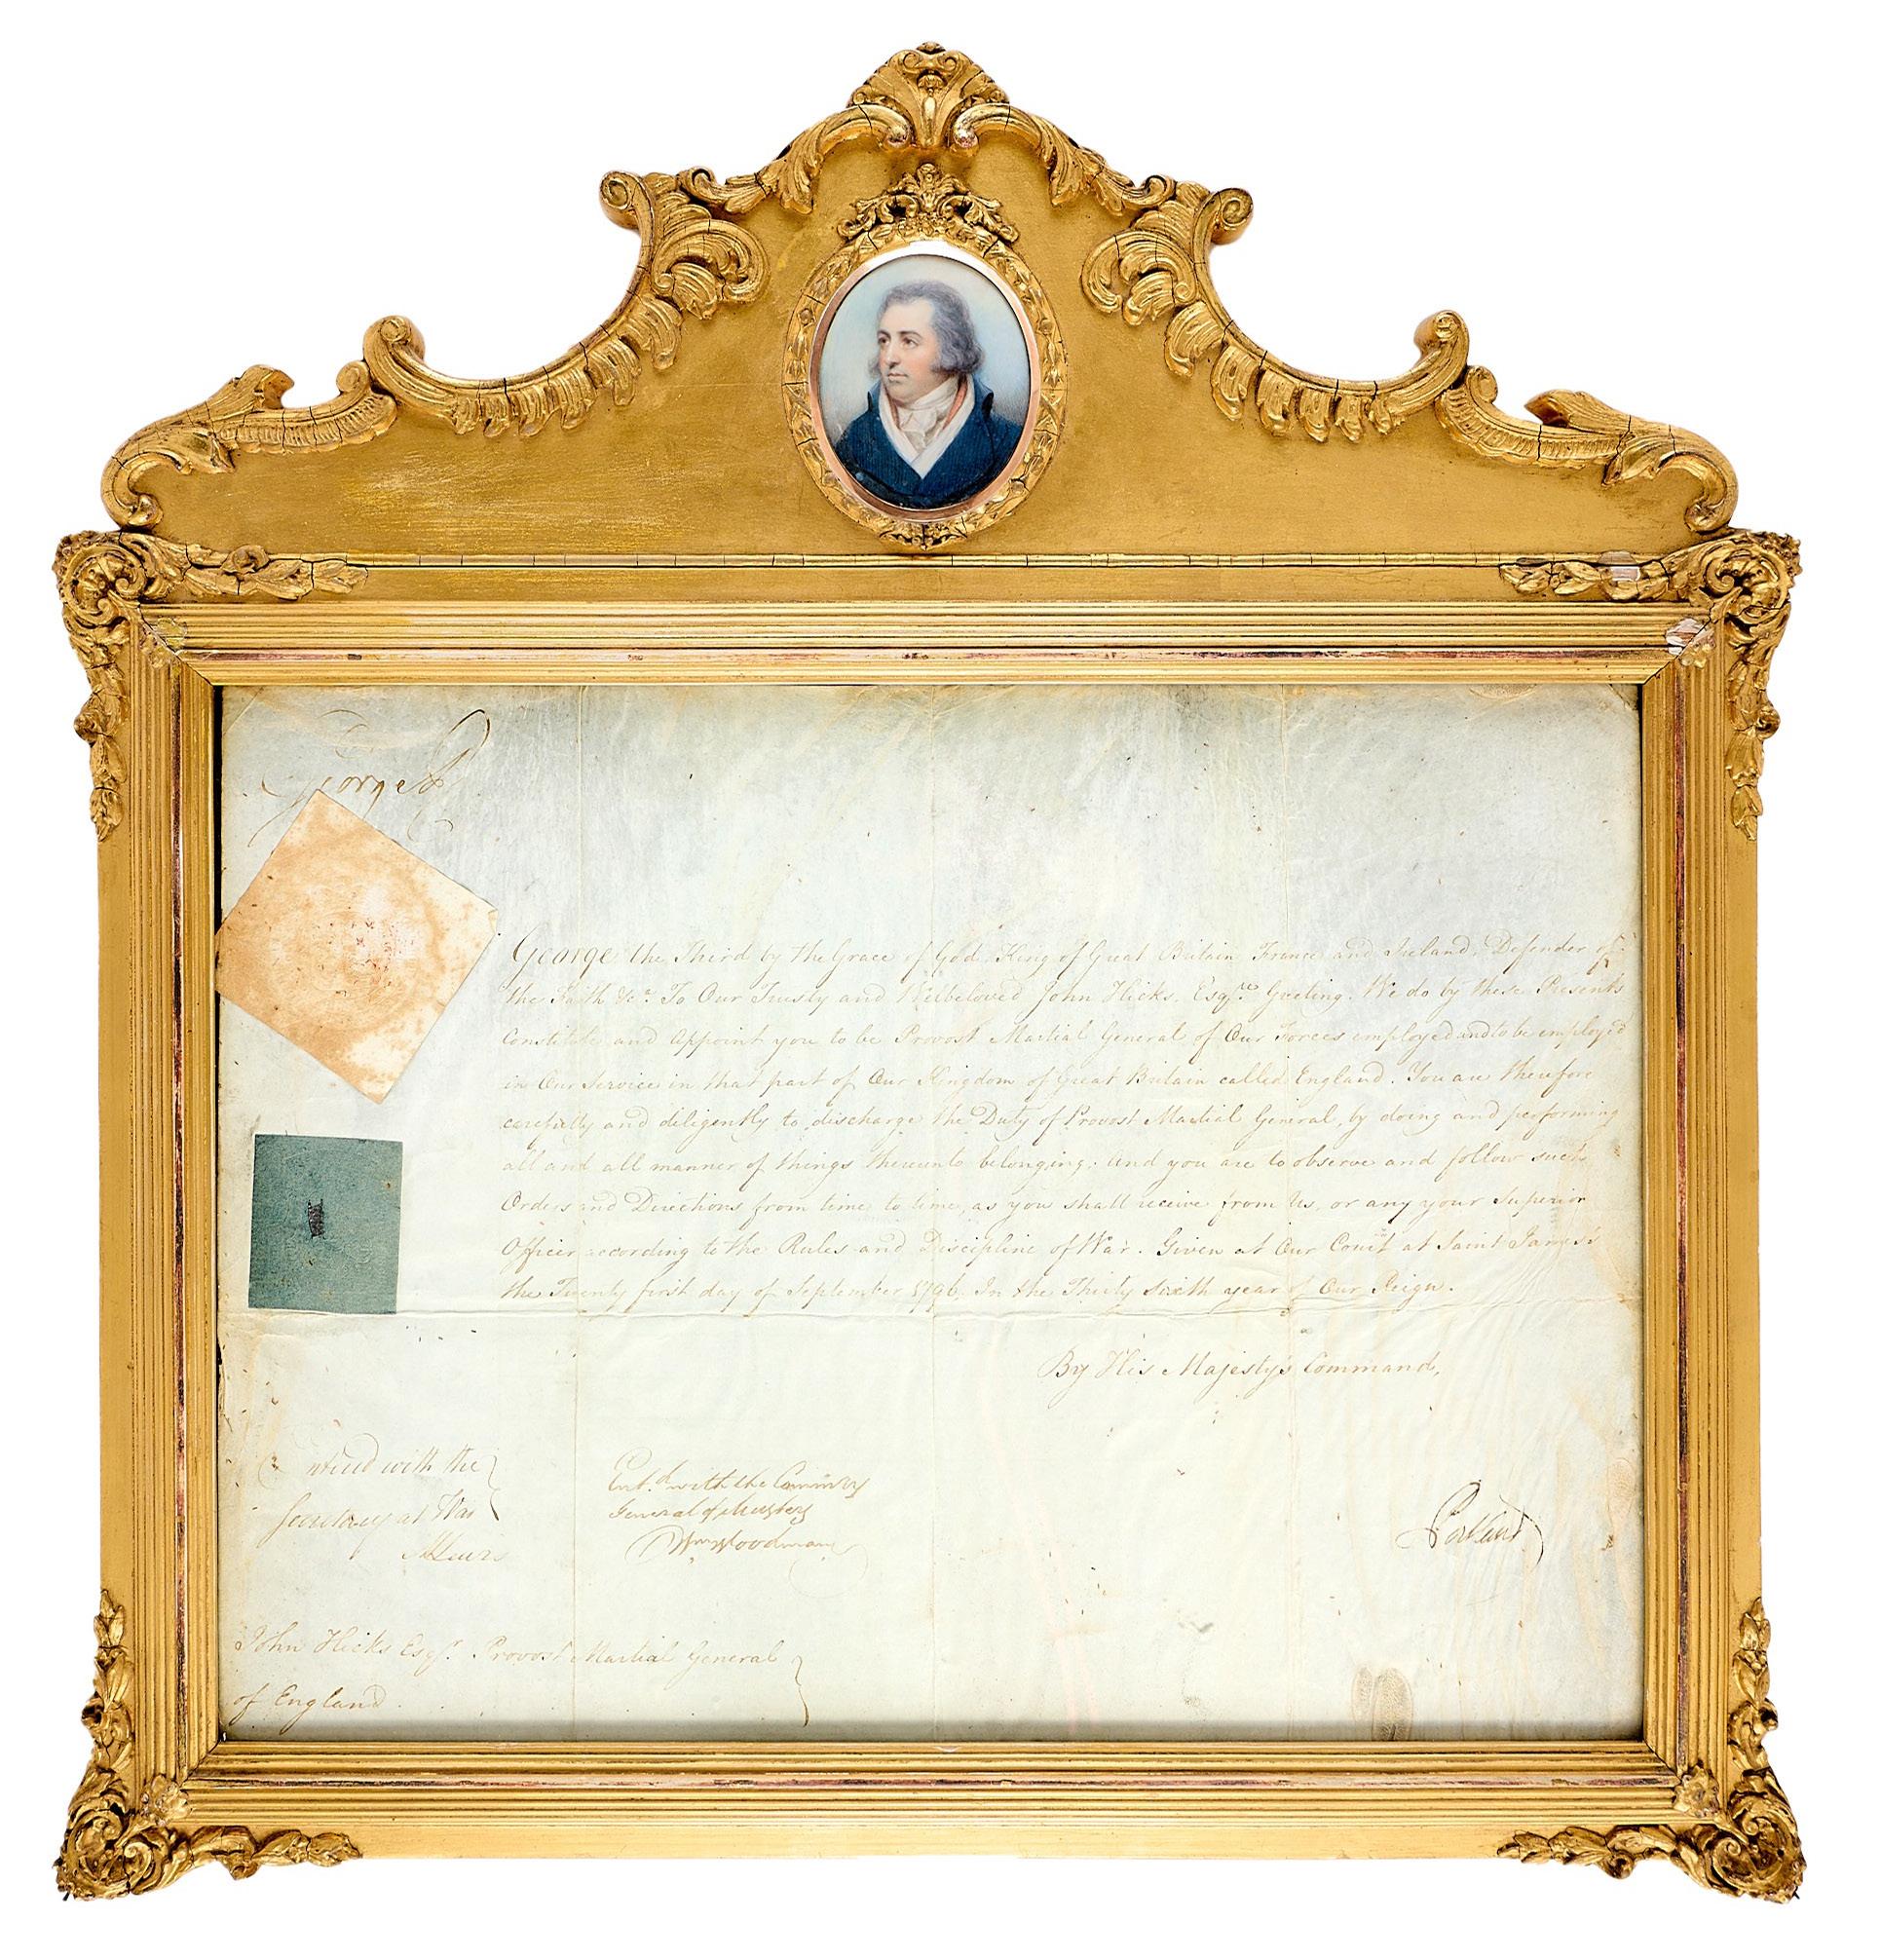 George R
George the Third by the Grace of God King of Great Britain France and Ireland, Defender of
the Faith &c.ª To Our Trusty and Welbeloved John Hicks, Esqʳᵉ Greeting. We do by these Presents
Constitute and Appoint you to be Provost Martial General of Our Forces employed and to be employed
in Our Service in that part of Our Kingdom of Great Britain called England. You are therefore
carefully and diligently to discharge the Duty of Provost Martial General, by doing and performing
all and all manner of things thereunto belonging; And you are to observe and follow such
Orders and Directions from time to time, as you shall receive from Us, or any your Superior
Officer according to the Rules and Discipline of War. Given at Our Court at Saint James's
the Twenty first day of September 1796. In the Thirty Sixth year of Our Reign.
By His Majesty's Command,
Entered with the
Secretary at War
MLewis
Ent.ᵈ with the Comm'ry
General of Musters
Wm Woodman
Portland
John Hicks Esqʳ. Provost Martial General
of England.